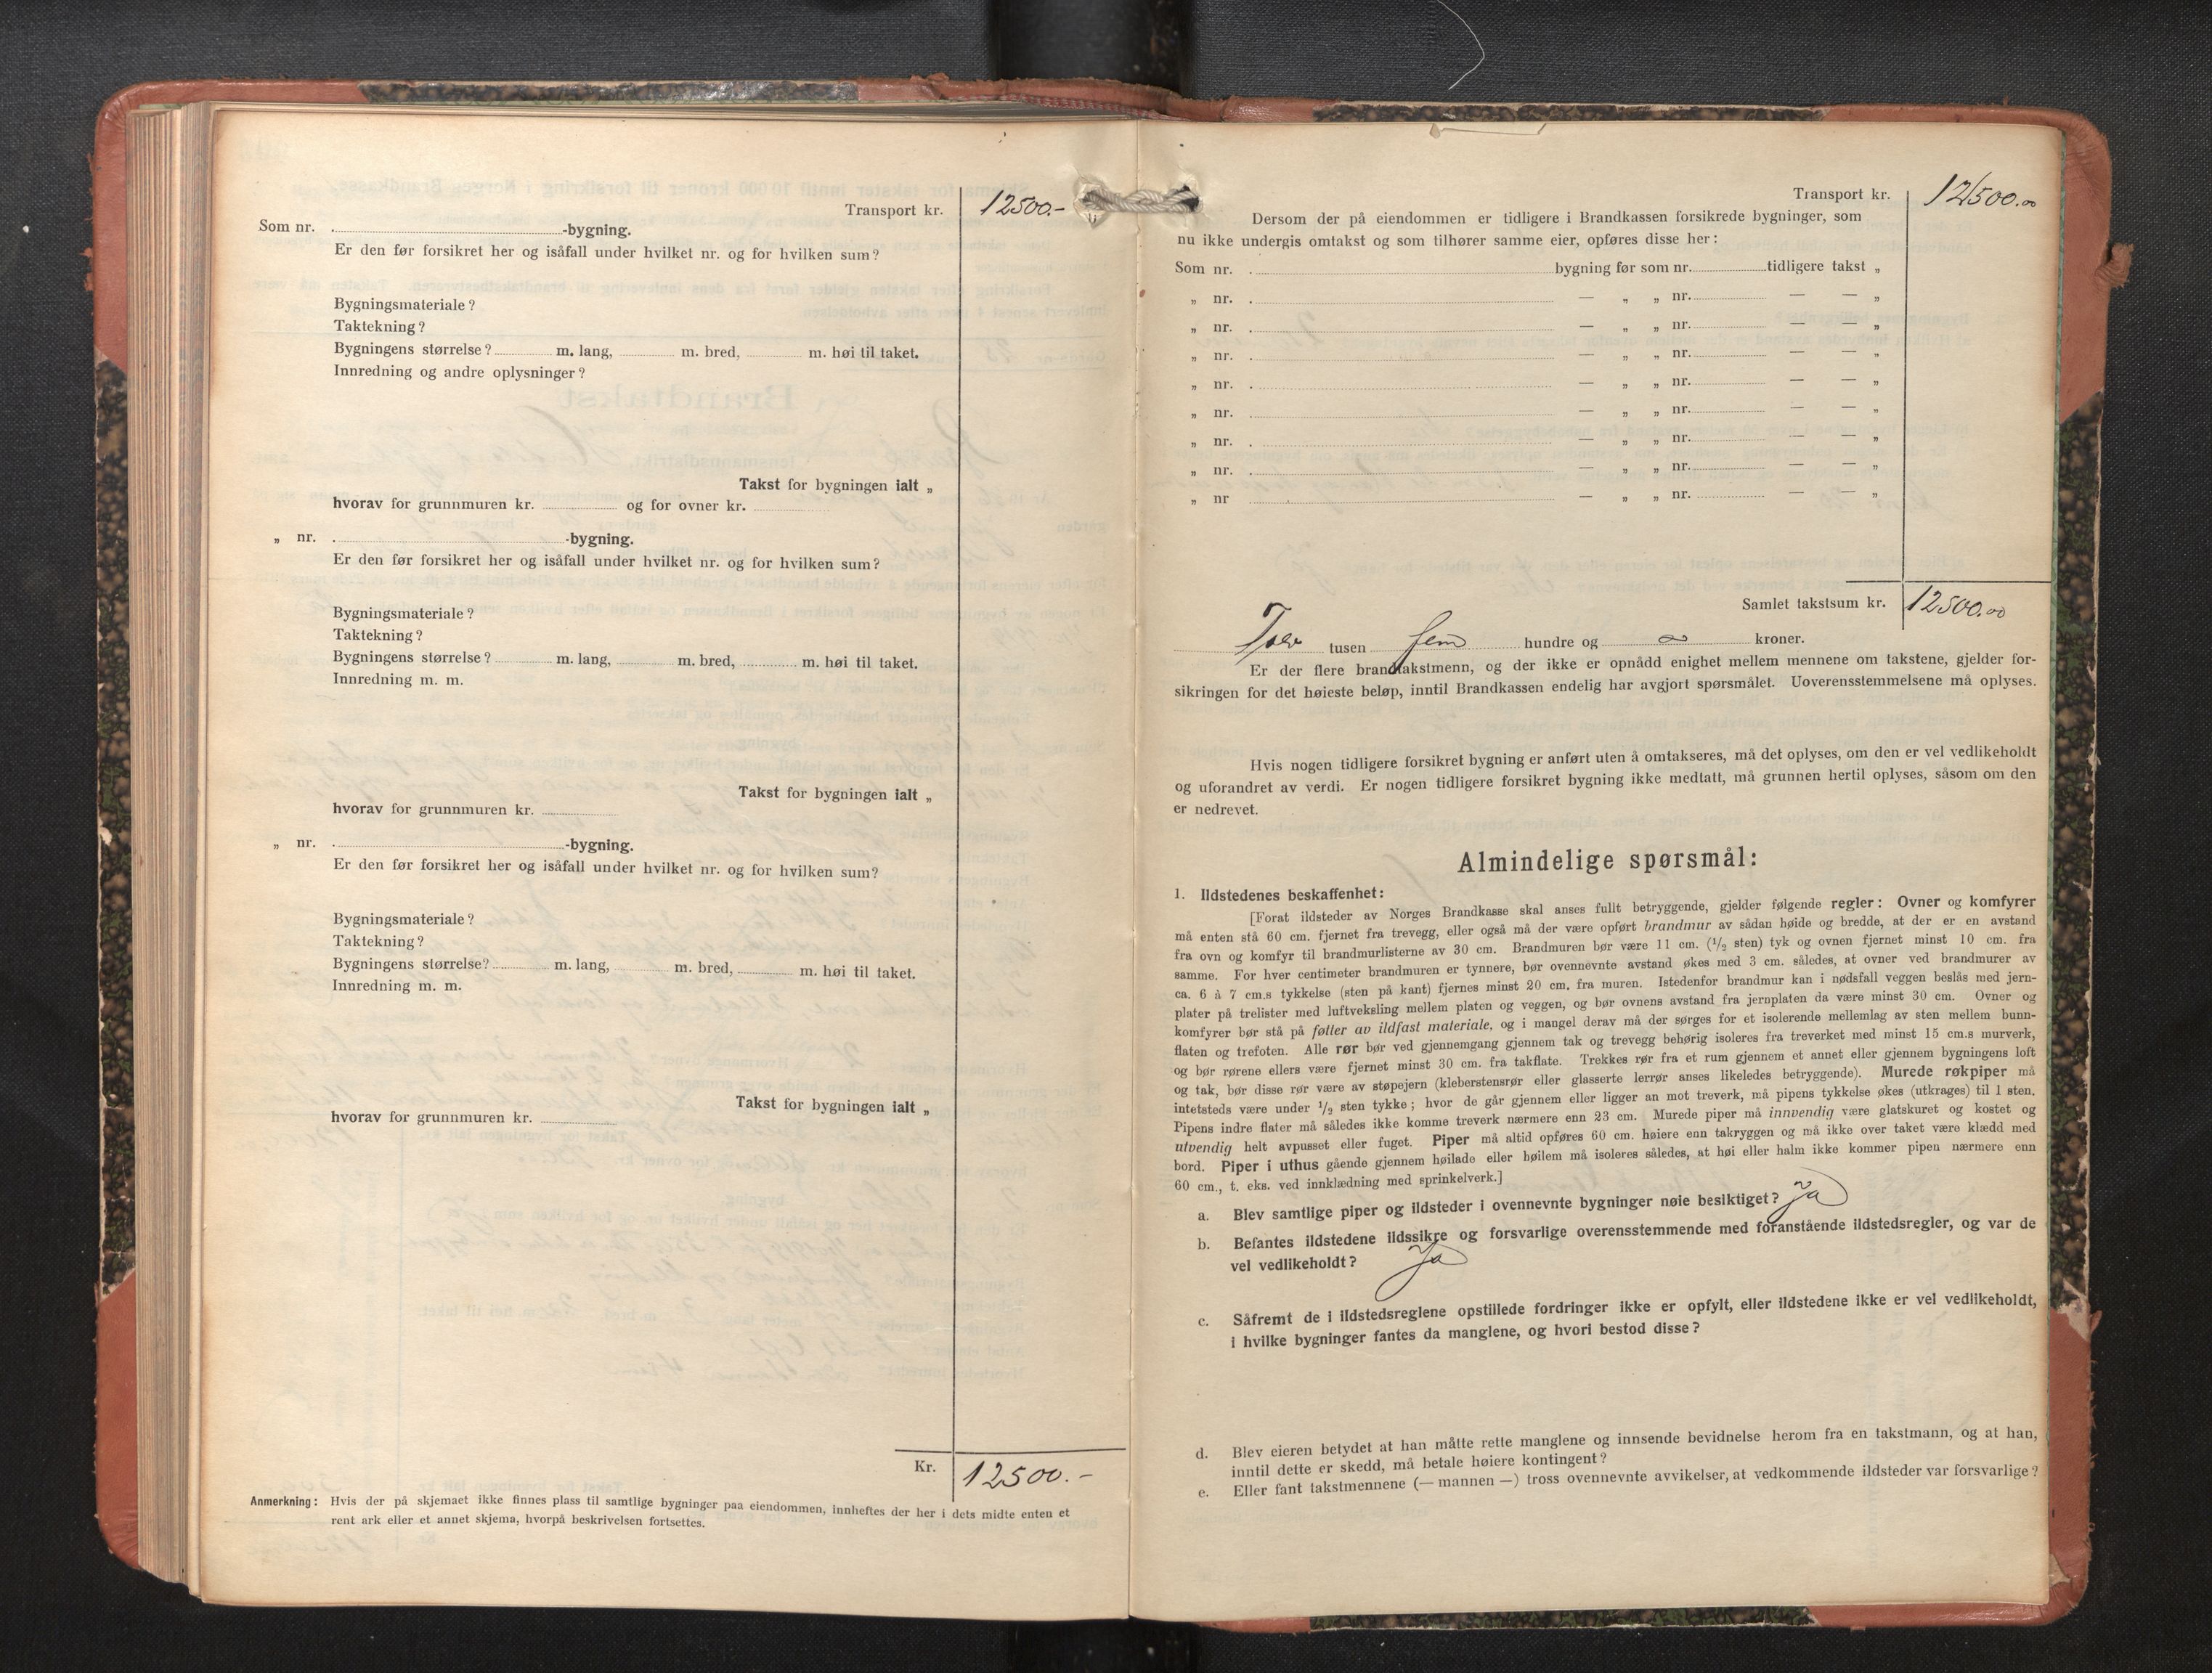 Transport kr. 12500.-
Som nr. -bygning.
Er den før forsikret her og isåfall under hvilket nr. og for hvilken sum?
Bygningsmateriale?
Taktekning?
Bygningens størrelse? m. lang, m. bred, m. høi til taket.
Innredning og andre oplysninger?
Takst for bygningen ialt „
hvorav for grunnmuren kr. og for ovner kr.
„ nr. -bygning.
Er den før forsikret her og isåfall under hvilket nr. og for hvilken sum?
Bygningsmateriale?
Taktekning?
Bygningens størrelse? m. lang, m. bred, m. høi til taket.
Innredning m. m.
Takst for bygningen ialt „
hvorav for grunnmuren kr.
„ nr. -bygning.
Er den før forsikret her og isåfall under hvilket nr. og for hvilken sum?
Bygningsmateriale?
Taktekning?
Bygningens størrelse? m. lang, m. bred, m. høi til taket.
Innredning m. m.
Takst for bygningen ialt „
hvorav for grunnmuren kr.
Kr. 12500.-
Anmerkning: Hvis der på skjemaet ikke finnes plass til samtlige bygninger paa eiendommen, innheftes der her i dets midte enten et
rent ark eller et annet skjema, hvorpå beskrivelsen fortsettes.
Transport kr. 12500.00
Dersom der på eiendommen er tidligere i Brandkassen forsikrede bygninger, som
nu ikke undergis omtakst og som tilhører samme eier, opføres disse her:
Som nr. bygning før som nr. tidligere takst „
„ nr. — „ „ nr. — — „
„ nr. — „ „ nr. — — „
„ nr. — „ „ nr. — — „
„ nr. — „ „ nr. — — „
„ nr. — „ „ nr. — — „
„ nr. — „ „ nr. — — „
„ nr. — „ „ nr. — — „
„ nr — „ „ nr. — — „
Samlet takstsum kr. 12500.00
Tolv tusen fem hundre og kroner.
Er der flere brandtakstmenn, og der ikke er opnådd enighet mellem mennene om takstene, gjelder for-
sikringen for det høieste beløp, inntil Brandkassen endelig har avgjort spørsmålet. Uoverensstemmelsene må oplyses.
Hvis nogen tidligere forsikret bygning er anført uten å omtakseres, må det oplyses, om den er vel vedlikeholdt
og uforandret av verdi. Er nogen tidligere forsikret bygning ikke medtatt, må grunnen hertil oplyses, såsom om den
er nedrevet.
Almindelige spørsmål:
1. Ildstedenes beskaffenhet:
[Forat ildsteder av Norges Brandkasse skal anses fullt betryggende, gjelder følgende regler: Ovner og komfyrer
må enten stå 60 cm. fjernet fra trevegg, eller også må der være opført brandmur av sådan høide og bredde, at der er en avstand
fra ovn og komfyr til brandmurlisterne av 30 cm. Brandmuren bør være 11 cm. (1/2 sten) tyk og ovnen fjernet minst 10 cm. fra
samme. For hver centimeter brandmuren er tynnere, bør ovennevnte avstand økes med 3 cm. således, at ovner ved brandmurer av
ca. 6 à 7 cm.s tykkelse (sten på kant) fjernes minst 20 cm. fra muren. Istedenfor brandmur kan i nødsfall veggen beslås med jern-
plater på trelister med luftveksling mellem platen og veggen, og bør ovnens avstand fra jernplaten da være minst 30 cm. Ovner og
komfyrer bør stå på føtter av ildfast materiale, og i mangel derav må der sørges for et isolerende mellemlag av sten mellem bunn-
flaten og trefoten. Alle rør bør ved gjennemgang gjennem tak og trevegg behørig isoleres fra treverket med minst 15 cm.s murverk,
og bør rørene ellers være fjernet minst 30 cm. fra takflate. Trekkes rør fra et rum gjennem et annet eller gjennem bygningens loft
og tak, bør disse rør være av støpejern (kleberstensrør eller glasserte lerrør anses likeledes betryggende). Murede røkpiper må
intetsteds være under 1/2 sten tykke; hvor de går gjennem eller ligger an mot treverk, må pipens tykkelse økes (utkrages) til 1 sten.
Pipens indre flater må således ikke komme treverk nærmere enn 23 cm. Murede piper må innvendig være glatskuret og kostet og
utvendig helt avpusset eller fuget. Piper må altid opføres 60 cm. høiere enn takryggen og må ikke over taket være klædd med
bord. Piper i uthus gående gjennem høilade eller høilem må isoleres således, at høi eller halm ikke kommer pipen nærmere enn
60 cm., t. eks. ved innklædning med sprinkelverk.]
a. Blev samtlige piper og ildsteder i ovennevnte bygninger nøie besiktiget? Ja
b. Befantes ildstedene ildssikre og forsvarlige overensstemmende med foranstående ildstedsregler, og var de
vel vedlikeholdt? Ja
c. Såfremt de i ildstedsreglene opstillede fordringer ikke er opfylt, eller ildstedene ikke er vel vedlikeholdt,
i hvilke bygninger fantes da manglene, og hvori bestod disse?
d. Blev eieren betydet at han måtte rette manglene og innsende bevidnelse herom fra en takstmann, og at han,
inntil dette er skedd, må betale høiere kontingent?
e. Eller fant takstmennene (— mannen —) tross ovennevnte avvikelser, at vedkommende ildsteder var forsvarlige?